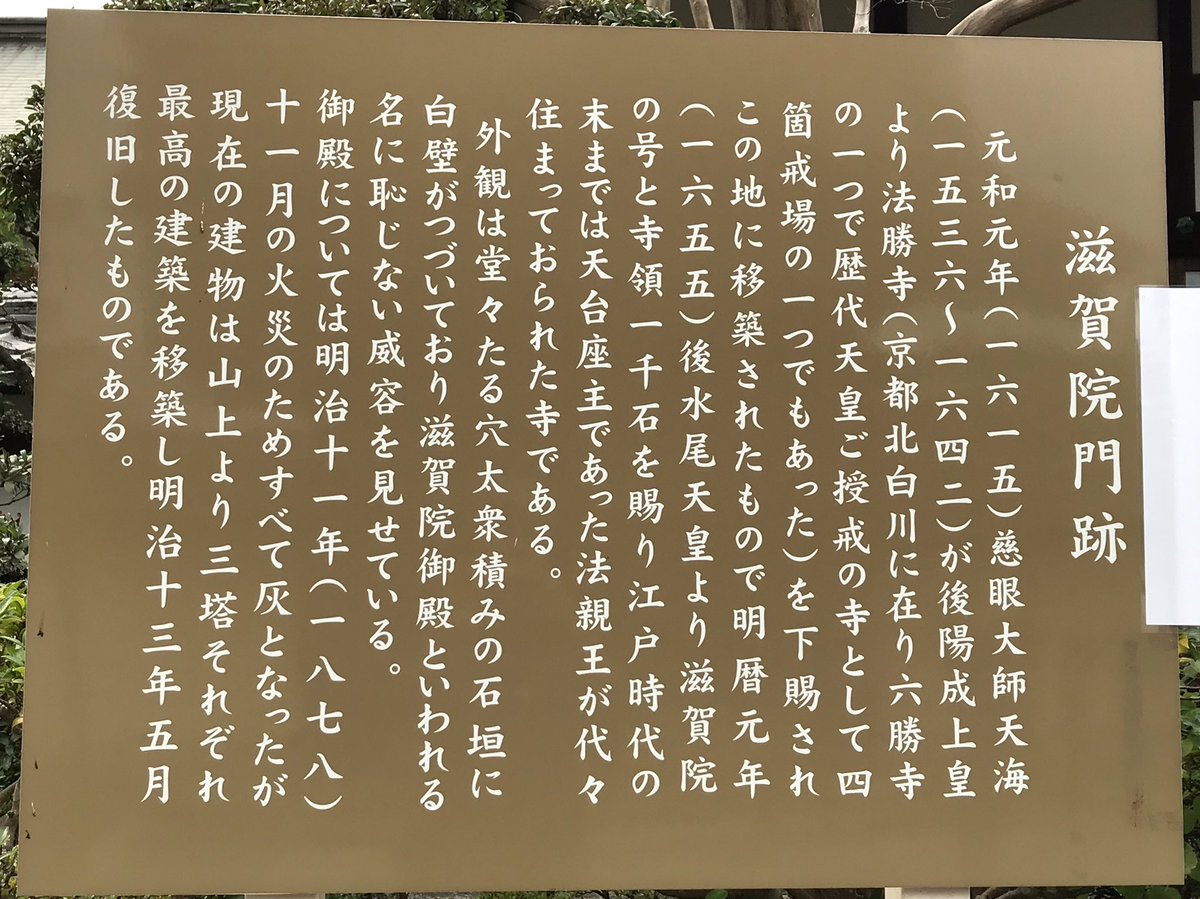 滋賀院門跡
元和元年(一六一五)慈眼大師天海
(一五三六〜一六四二)が後陽成上皇
より法勝寺(京都北白川に在り六勝寺
の一つで歴代天皇ご授戒の寺として四
箇戒場の一つでもあった)を下賜され
この地に移築されたもので明暦元年
(一六五五)後水尾天皇より滋賀院
の号と寺領一千石を賜り江戸時代の
末までは天台座主であった法親王が代々
住まっておられた寺である。
外観は堂々たる穴太衆積みの石垣に
白壁がつづいており滋賀院御殿といわれる
名に恥じない威容を見せている。
御殿については明治十一年(一八七八)
十一月の火災のためすべて灰となったが
現在の建物は山上より三塔それぞれ
最高の建築を移築し明治十三年五月
復旧したものである。